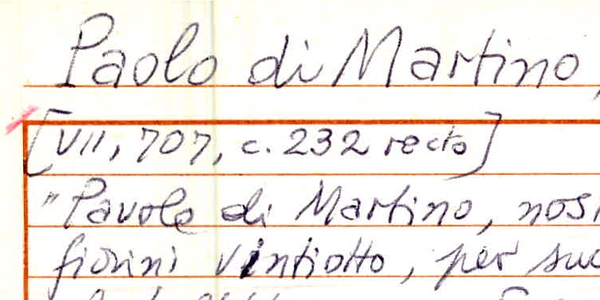 Paolo di Martino,
[VII, 707, c. 232 recto]
"Pavolo di Martino, nos
fiorini vintiotto, per suo